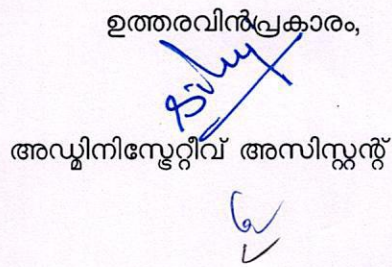 ഉത്തരവിൻപ്രകാരം,
അഡ്മിനിസ്ട്രേറ്റീവ് അസിസ്റ്റന്റ്